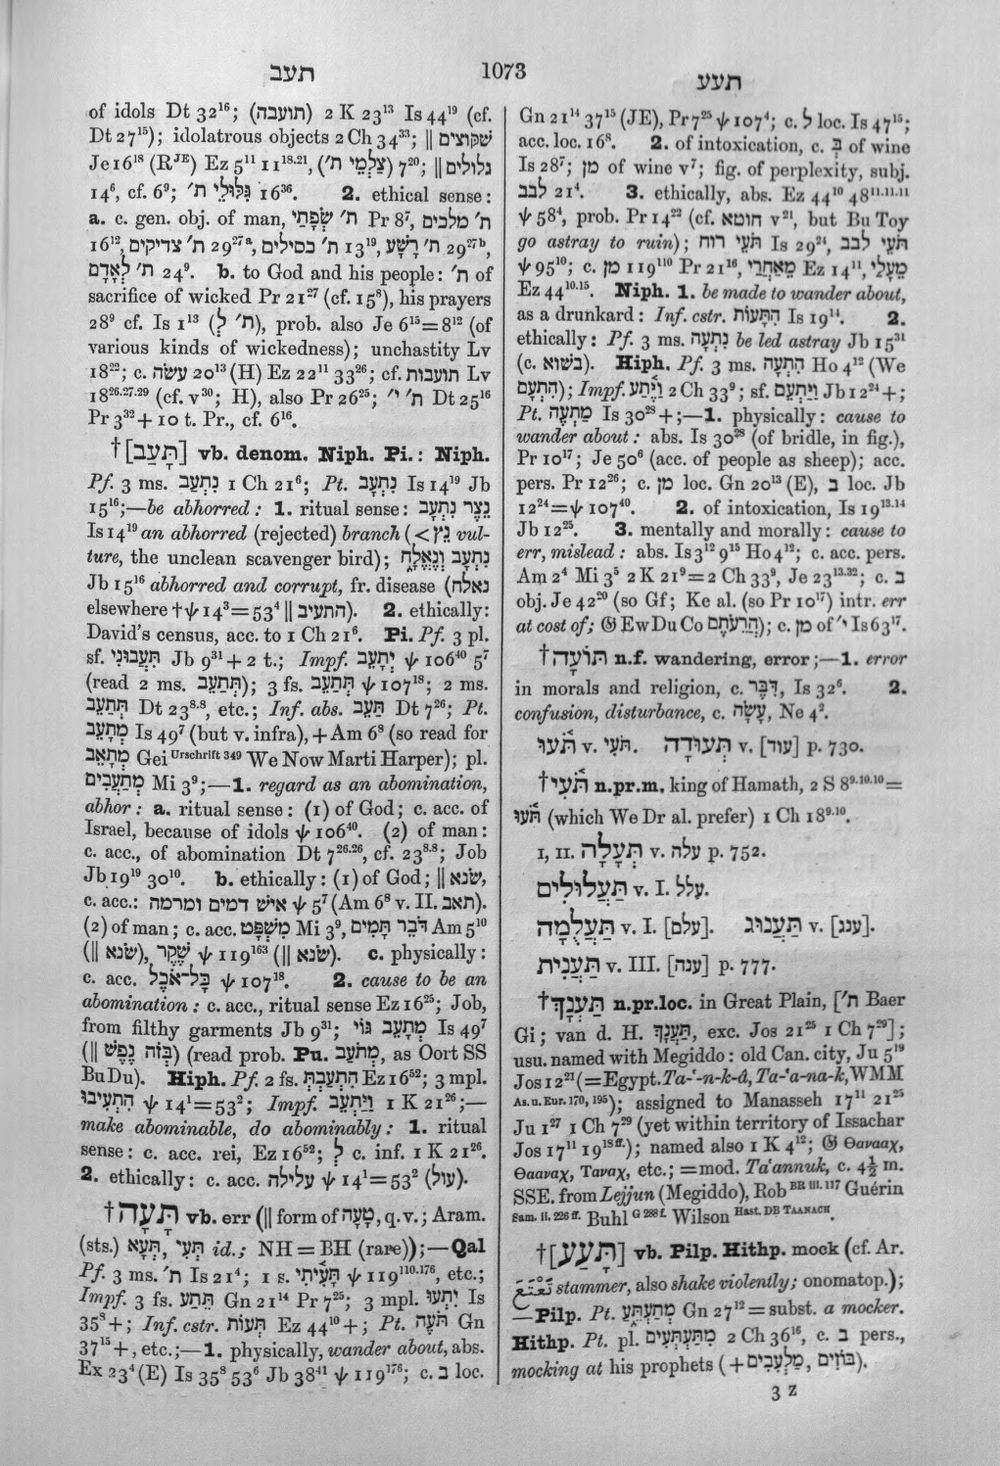 תעב
1073
תעע
of idols Dt 32¹⁶; (תועבה) 2 K 23¹³ Is 44¹⁹ (cf.
Dt 27¹⁵); idolatrous objects 2 Ch 34³³; ‖ שקוצים
Je 16¹⁸ (Rᴶᴱ) Ez 5¹¹ 11¹⁸·²¹, (צַלְמֵי ת׳) 7²⁰; ‖ גלולים
14⁶, cf. 6⁹; גִּלּוּלֵי ת׳ 16³⁶. 2. ethical sense:
a. c. gen. obj. of man, ת׳ שְׂפָתַי Pr 8⁷, ת׳ מלכים
16¹², ת׳ צדיקים 29²⁷ᵃ, ת׳ כסילים 13¹⁹, ת׳ רָשָׁע 29²⁷ᵇ,
ת׳ לְאָדָם 24⁹. b. to God and his people: ת׳ of
sacrifice of wicked Pr 21²⁷ (cf. 15⁸), his prayers
28⁹ cf. Is 1¹³ (ת׳ לְ), prob. also Je 6¹⁵=8¹² (of
various kinds of wickedness); unchastity Lv
18²²; c. עשׂה 20¹³ (H) Ez 22¹¹ 33²⁶; cf. תועבות Lv
18²⁶·²⁷·²⁹ (cf. v³⁰; H), also Pr 26²⁵; ת׳ י׳ Dt 25¹⁶
Pr 3³² + 10 t. Pr., cf. 6¹⁶.
†[תָּעַב] vb. denom. Niph. Pi.: Niph.
Pf. 3 ms. נִתְעַב 1 Ch 21⁶; Pt. נִתְעָב Is 14¹⁹ Jb
15¹⁶;—be abhorred: 1. ritual sense: נֵצֶר נִתְעָב
Is 14¹⁹ an abhorred (rejected) branch (< נֵץ vul-
ture, the unclean scavenger bird); נִתְעָב וְנֶאֱלָח
Jb 15¹⁶ abhorred and corrupt, fr. disease (נאלח
elsewhere †ψ 14³=53⁴ ‖ התעיב). 2. ethically:
David's census, acc. to 1 Ch 21⁶. Pi. Pf. 3 pl.
sf. תִּעֲבוּנִי Jb 9³¹ + 2 t.; Impf. יְתָעֵב ψ 106⁴⁰ 5⁷
(read 2 ms. תְּתַעֵב); 3 fs. תְּתַעֵב ψ 107¹⁸; 2 ms.
תְּתַעֵב Dt 23⁸·⁸, etc.; Inf. abs. תַּעֵב Dt 7²⁶; Pt.
מְתָעֵב Is 49⁷ (but v. infra), + Am 6⁸ (so read for
מְתָאֵב Gei Urschrift 349 We Now Marti Harper); pl.
מְתַעֲבִים Mi 3⁹;—1. regard as an abomination,
abhor: a. ritual sense: (1) of God; c. acc. of
Israel, because of idols ψ 106⁴⁰. (2) of man:
c. acc., of abomination Dt 7²⁶·²⁶, cf. 23⁸·⁸; Job
Jb 19¹⁹ 30¹⁰. b. ethically: (1) of God; ‖ שׂנא,
c. acc.: איש דמים ומרמה ψ 5⁷ (Am 6⁸ v. II. תאב).
(2) of man; c. acc. מִשְׁפָּט Mi 3⁹, דֹּבֵר תָּמִים Am 5¹⁰
(‖ שׂנא), שֶׁקֶר ψ 119¹⁶³ (‖ שׂנא). c. physically:
c. acc. כָּל־אֹכֶל ψ 107¹⁸. 2. cause to be an
abomination: c. acc., ritual sense Ez 16²⁵; Job,
from filthy garments Jb 9³¹; מְתָעֵב גּוֹי Is 49⁷
(‖ בְּזֹה נֶפֶשׁ) (read prob. Pu. מְתֹעָב, as Oort SS
Bu Du). Hiph. Pf. 2 fs. הִתְעַבְתְּ Ez 16⁵²; 3 mpl.
הִתְעִיבוּ ψ 14¹=53²; Impf. וַיַּתְעֵב 1 K 21²⁶;—
make abominable, do abominably: 1. ritual
sense: c. acc. rei, Ez 16⁵²; לְ c. inf. 1 K 21²⁶.
2. ethically: c. acc. עלילה ψ 14¹=53² (עול).
†תָּעָה vb. err (‖ form of טָעָה, q.v.; Aram.
(sts.) תְּעָא, תְּעִי id.; NH = BH (rare));—Qal
Pf. 3 ms. ת׳ Is 21⁴; 1 s. תָּעִיתִי ψ 119¹¹⁰·¹⁷⁶, etc.;
Impf. 3 fs. תֵּתַע Gn 21¹⁴ Pr 7²⁵; 3 mpl. יִתְעוּ Is
35⁸+; Inf. cstr. תְּעוֹת Ez 44¹⁰+; Pt. תֹּעֶה Gn
37¹⁵+, etc.;—1. physically, wander about, abs.
Ex 23⁴ (E) Is 35⁸ 53⁶ Jb 38⁴¹ ψ 119¹⁷⁶; c. ב loc.
Gn 21¹⁴ 37¹⁵ (JE), Pr 7²⁵ ψ 107⁴; c. ל loc. Is 47¹⁵;
acc. loc. 16⁸. 2. of intoxication, c. בְּ of wine
Is 28⁷; מִן of wine v⁷; fig. of perplexity, subj.
לבב 21⁴. 3. ethically, abs. Ez 44¹⁰ 48¹¹·¹¹·¹¹
ψ 58⁴, prob. Pr 14²² (cf. חוטא v²¹, but Bu Toy
go astray to ruin); תֹּעֵי רוח Is 29²⁴, תֹּעֵי לבב
ψ 95¹⁰; c. מִן 119¹¹⁰ Pr 21¹⁶, מֵאַחֲרֵי Ez 14¹¹, מֵעָלַי
Ez 44¹⁰·¹⁵. Niph. 1. be made to wander about,
as a drunkard: Inf. cstr. הִתָּעוֹת Is 19¹⁴. 2.
ethically: Pf. 3 ms. נִתְעָה be led astray Jb 15³¹
(c. בשוא). Hiph. Pf. 3 ms. הִתְעָה Ho 4¹² (We
הִתְעָם); Impf. וַיֶּתַע 2 Ch 33⁹; sf. וַיַּתְעֵם Jb 12²⁴+;
Pt. מַתְעֶה Is 30²⁸+;—1. physically: cause to
wander about: abs. Is 30²⁸ (of bridle, in fig.),
Pr 10¹⁷; Je 50⁶ (acc. of people as sheep); acc.
pers. Pr 12²⁶; c. מִן loc. Gn 20¹³ (E), ב loc. Jb
12²⁴=ψ 107⁴⁰. 2. of intoxication, Is 19¹³·¹⁴
Jb 12²⁵. 3. mentally and morally: cause to
err, mislead: abs. Is 3¹² 9¹⁵ Ho 4¹²; c. acc. pers.
Am 2⁴ Mi 3⁵ 2 K 21⁹=2 Ch 33⁹, Je 23¹³·³²; c. ב
obj. Je 42²⁰ (so Gf; Ke al. (so Pr 10¹⁷) intr. err
at cost of; 𝔊 Ew Du Co הֲרֵעֹתֶם); c. מִן of י׳ Is 63¹⁷.
†תּוֹעָה n.f. wandering, error;—1. error
in morals and religion, c. דִּבֶּר, Is 32⁶. 2.
confusion, disturbance, c. עָשָׂה, Ne 4².
תֹּעוּ v. תֹּעִי. תְּעוּדָה v. [עוד] p. 730.
†תֹּעִי n.pr.m. king of Hamath, 2 S 8⁹·¹⁰·¹⁰=
תֹּעוּ (which We Dr al. prefer) 1 Ch 18⁹·¹⁰.
I, II. תְּעָלָה v. עלה p. 752.
תַּעֲלוּלִים v. I. עלל.
תַּעֲלֻמָה v. I. [עלם]. תַּעֲנוּג v. [ענג].
תַּעֲנִית v. III. [ענה] p. 777.
†תַּעֲנָךְ n.pr.loc. in Great Plain, [ת׳ Baer
Gi; van d. H. תַּעְנָךְ, exc. Jos 21²⁵ 1 Ch 7²⁹];
usu. named with Megiddo: old Can. city, Ju 5¹⁹
Jos 12²¹ (=Egypt. Ta-ʿ-n-k-â, Ta-ʿa-na-k, WMM
As. u. Eur. 170, 195); assigned to Manasseh 17¹¹ 21²⁵
Ju 1²⁷ 1 Ch 7²⁹ (yet within territory of Issachar
Jos 17¹¹ 19¹⁸ ᶠᶠ·); named also 1 K 4¹²; 𝔊 Θαναaχ,
Θααναχ, Ταναχ, etc.; = mod. Taʿannuk, c. 4½ m.
SSE. from Lejjun (Megiddo), Rob BR III. 117 Guérin
Sam. II. 226 ff. Buhl G 288 f. Wilson Hast. DB TAANACH.
†[תָּעַע] vb. Pilp. Hithp. mock (cf. Ar.
تَعْتَعَ stammer, also shake violently; onomatop.);
—Pilp. Pt. מְתַעְתֵּעַ Gn 27¹² = subst. a mocker.
Hithp. Pt. pl. מִתַּעְתְּעִים 2 Ch 36¹⁶, c. ב pers.,
mocking at his prophets (+ בּוֹזִים, מַלְעִבִים).
3 Z